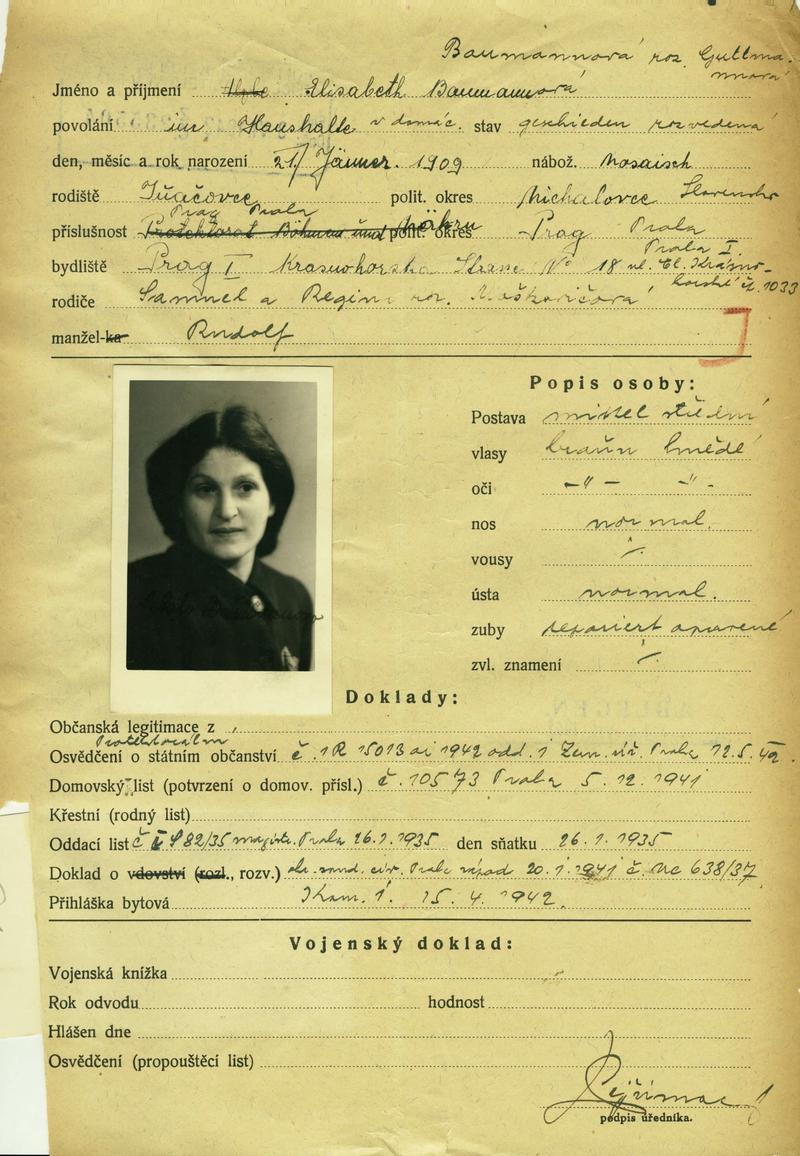 Baumannová roz. Guttmannová
Jméno a příjmení Elisabeth Baumannová
povolání im Haushalte v domác. stav geschieden rozvedená
den, měsíc a rok narození 21/ Jänner. 1909 nábož. mosaisch
rodiště polit. okres Michalovce Slovensko
Prag Praha
příslušnost Protektorat Böhmen und Mähren polit. okres Prag Praha
bydliště Prag I Krasnohorska Strasse N° 18 ul. El. Krásnohorské č. 1033 Praha I.
rodiče Samuel a Regina roz. Moškovičová
manžel-ka Rudolf
Popis osoby:
Postava mittel střední
vlasy braun hnědé
oči —"— —"—
nos normal.
vousy /
ústa normal.
zuby repariert opravené
zvl. znamení /
Doklady:
Občanská legitimace z
Osvědčení o státním občanství č. 1R 15013 ai 1942 odd. 1 Zem. úř. Praha 12.5.42
Domovský list (potvrzení o domov. přísl.) č. 10573 Praha 5. 12. 1941
Křestní (rodný list)
Oddací list č 482/35 magistr. Praha 26.1.1935 den sňatku 26.1.1935
Doklad o vdovství (rozl., rozv.) Praha 20. 1. 1941 č. Nc 638/37
Přihláška bytová 15. 4. 1942.
Vojenský doklad:
Vojenská knížka
Rok odvodu hodnost
Hlášen dne
Osvědčení (propouštěcí list)
podpis úředníka.